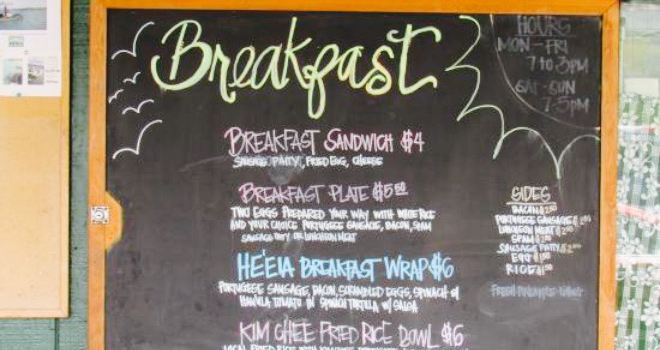 Breakfast
HOURS
MON-FRI
7 to 3PM
SAT-SUN
7-5PM
BREAKFAST SANDWICH $4
SAUSAGE PATTY, FRIED EGG, CHEESE
BREAKFAST PLATE $5.50
TWO EGGS PREPARED YOUR WAY WITH WHITE RICE
AND YOUR CHOICE PORTUGESE SAUSAGE, BACON, SPAM
SAUSAGE PATTY OR LUNCHEON MEAT
HE'EIA BREAKFAST WRAP $6
PORTUGESE SAUSAGE, BACON, SCRAMBLED EGGS, SPINACH &
HAMAKUA TOMATO IN SPINACH TORTILLA W/ SALSA
KIM CHEE FRIED RICE BOWL $6
LOCAL FRIED RICE WITH
SIDES
BACON
PORTUGESE SAUSAGE
LUNCHEON MEAT
SPAM
SAUSAGE PATTY
EGG
RICE
FRESH PINEAPPLE